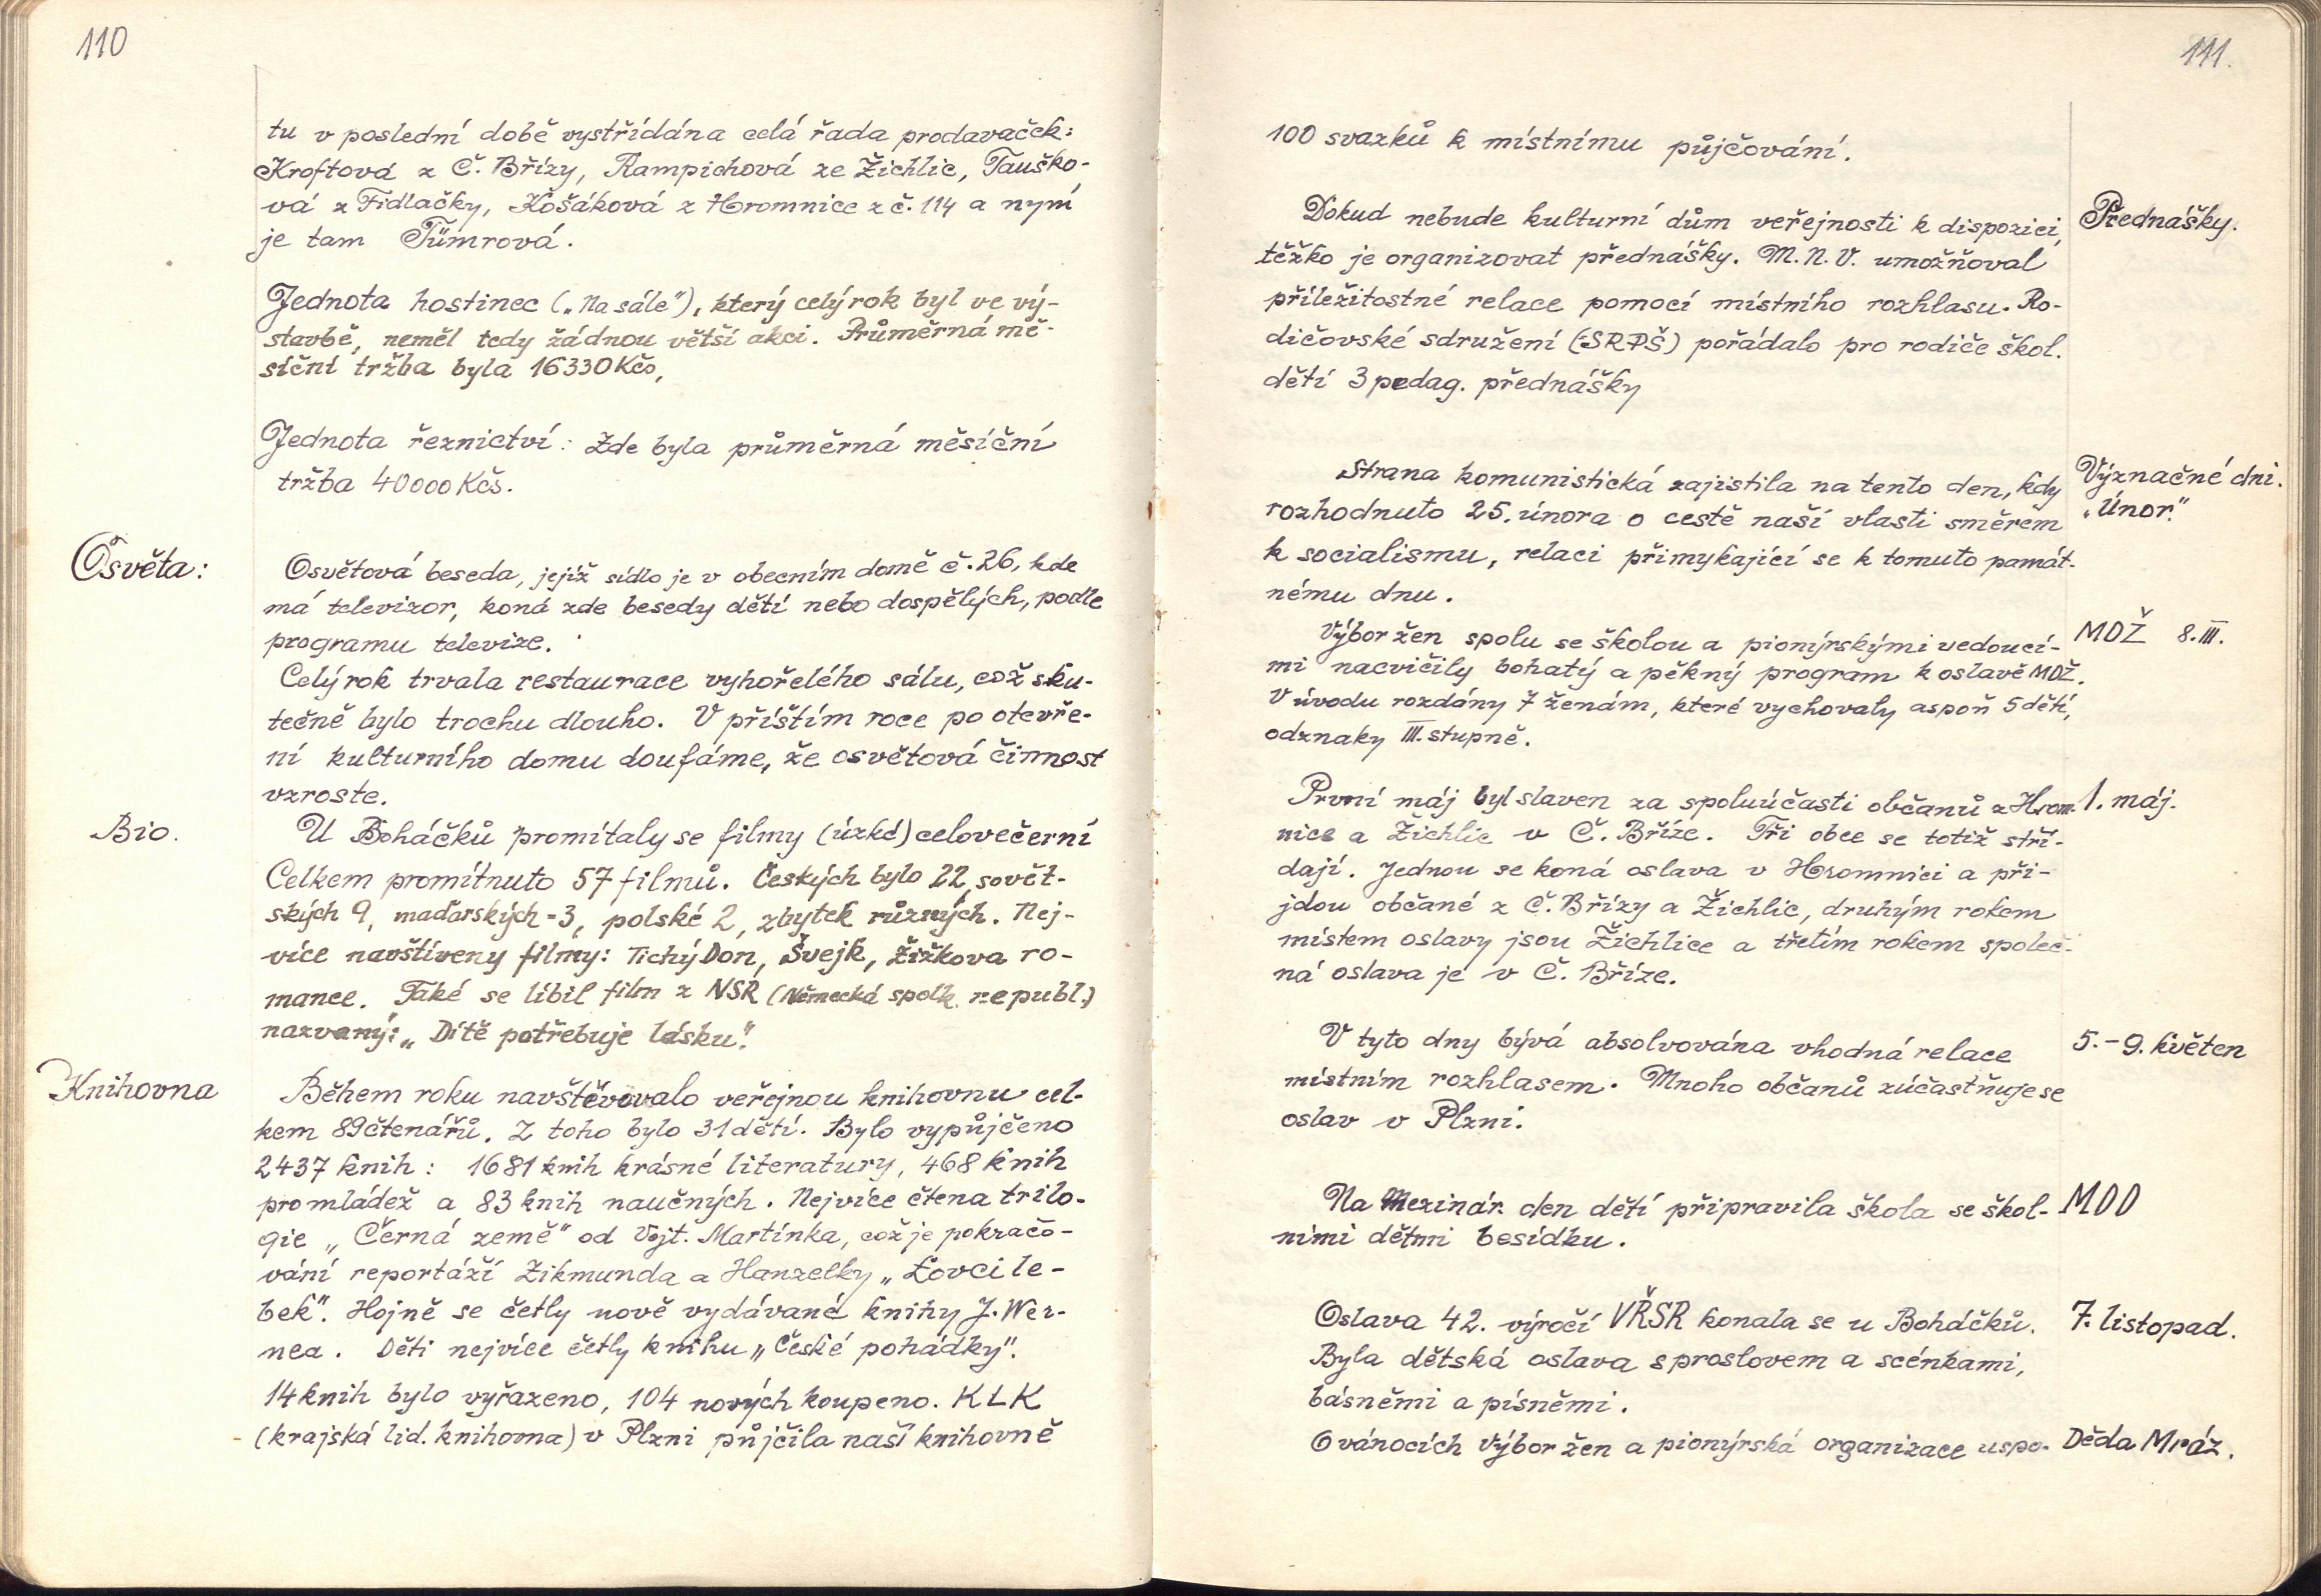 110
tu v poslední době vystřídána celá řada prodavaček:
Kroftová z Č. Břízy, Rampichová ze Žichlic, Tauško-
vá z Fidlačky, Košáková z Hromnice z č. 114 a nyní
je tam Tümrová.
Jednota hostinec („Na sále"), který celý rok byl ve vý-
stavbě, neměl tedy žádnou větší akci. Průměrná mě-
síční tržba byla 16330 Kčs,
Jednota řeznictví: Zde byla průměrná měsíční
tržba 40000 Kčs.
Osvěta:
Osvětová beseda, jejíž sídlo je v obecním domě č. 26, kde
má televizor, koná zde besedy dětí nebo dospělých, podle
programu televize.
Celý rok trvala restaurace vyhořelého sálu, což sku-
tečně bylo trochu dlouho. V příštím roce po otevře-
ní kulturního domu doufáme, že osvětová činnost
vzroste.
Bio.
U Boháčků promítaly se filmy (úzké) celovečerní
Celkem promítnuto 57 filmů. Českých bylo 22, sovět-
ských 9, maďarských - 3, polské 2, zbytek různých. Nej-
více navštíveny filmy: Tichý Don, Švejk, Žižkova ro-
mance. Také se líbil film z NSR (Německá spolk. republ.)
nazvaný: „Dítě potřebuje lásku".
Knihovna
Během roku navštěvovalo veřejnou knihovnu cel-
kem 89 čtenářů. Z toho bylo 31 dětí. Bylo vypůjčeno
2437 knih: 1681 knih krásné literatury, 468 knih
pro mládež a 83 knih naučných. Nejvíce čtena trilo-
gie „Černá země" od Vojt. Martínka, což je pokračo-
vání reportáží Zikmunda a Hanzelky „Lovci le-
bek". Hojně se četly nově vydávané knihy J. Wer-
nea. Děti nejvíce četly knihu „České pohádky".
14 knih bylo vyřazeno, 104 nových koupeno. KLK
(krajská lid. knihovna) v Plzni půjčila naší knihovně
111.
100 svazků k místnímu půjčování.
Přednášky.
Dokud nebude kulturní dům veřejnosti k dispozici,
těžko je organizovat přednášky. M.N.V. umožňoval
příležitostné relace pomocí místního rozhlasu. Ro-
dičovské sdružení (SRPŠ) pořádalo pro rodiče škol.
dětí 3 pedag. přednášky
Význačné dni.
„Únor."
Strana komunistická zajistila na tento den, kdy
rozhodnuto 25. února o cestě naší vlasti směrem
k socialismu, relaci přimykající se k tomuto památ-
nému dnu.
MDŽ 8. III.
Výbor žen spolu se školou a pionýrskými vedoucí-
mi nacvičily bohatý a pěkný program k oslavě MDŽ.
V úvodu rozdány 7 ženám, které vychovaly aspoň 5 dětí,
odznaky III. stupně.
1. máj.
První máj byl slaven za spoluúčasti občanů z Hrom-
nice a Žichlic v Č. Bříze. Tři obce se totiž stří-
dají. Jednou se koná oslava v Hromnici a při-
jdou občané z Č. Břízy a Žichlic, druhým rokem
místem oslavy jsou Žichlice a třetím rokem společ-
ná oslava je v Č. Bříze.
5.-9. květen
V tyto dny bývá absolvována vhodná relace
místním rozhlasem. Mnoho občanů zúčastňuje se
oslav v Plzni.
MDD
Na Mezinár. den dětí připravila škola se škol-
ními dětmi besídku.
7. listopad.
Oslava 42. výročí VŘSR konala se u Boháčků.
Byla dětská oslava s proslovem a scénkami,
básněmi a písněmi.
Děda Mráz.
O vánocích Výbor žen a pionýrská organizace uspo-